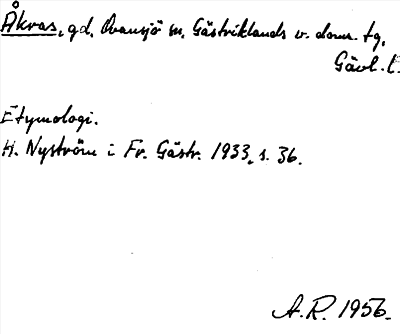 Åkvas, gd, Ovansjö sn, Gästriklands v. doms. tg,
Gävl. l.
Etymologi.
H. Nyström i Fr. Gästr. 1933, s. 36.
A.R. 1956.